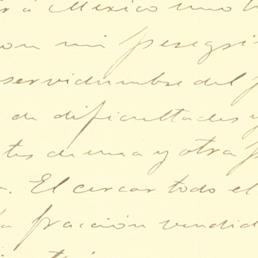 á México
con mi
servidumbre del
de dificultades y
de una y otra
El cercar todo el
fracción vendid